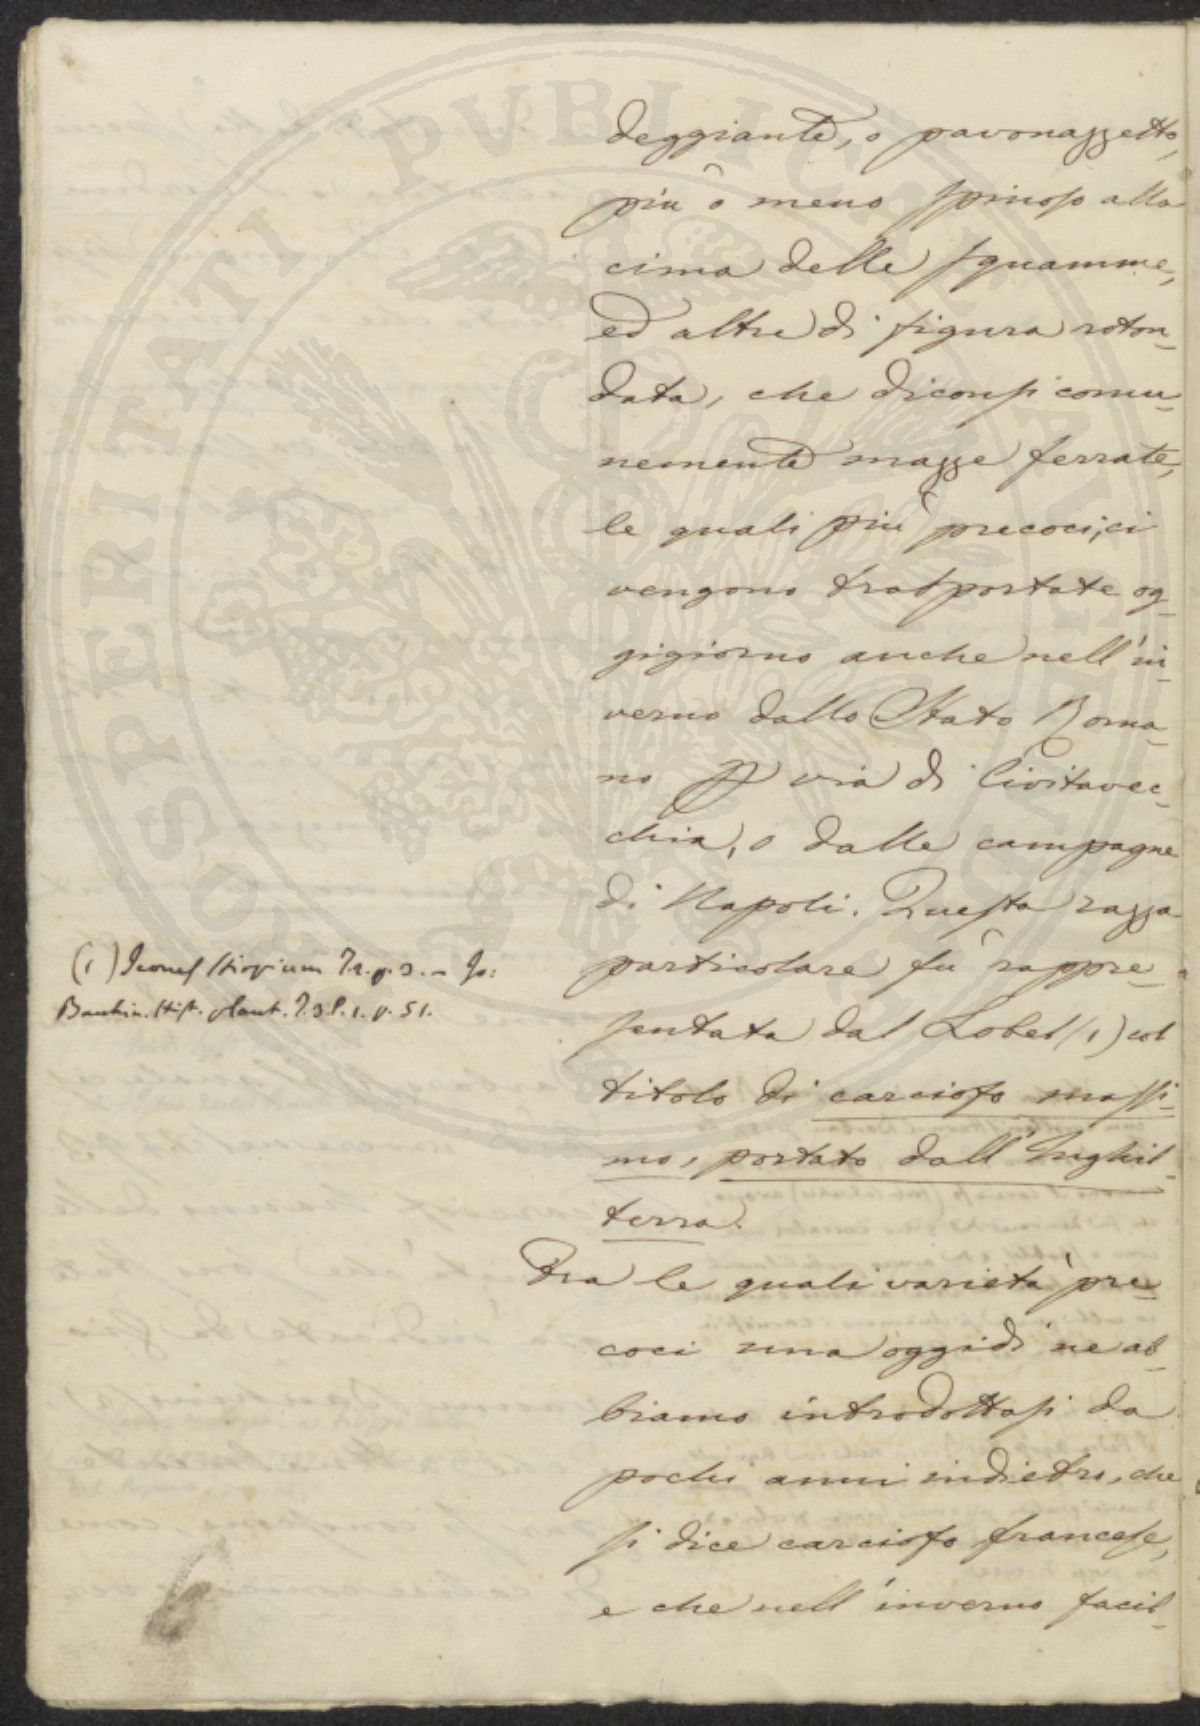 deggiante, o pavonazzetto,
più o meno spinoso alla
cima delle squamme,
ed altre di figura roton-
data, che diconsi comu-
nemente mazze ferrate,
le quali più precoci, ci
vengono trasportate og-
gigiorno anche nell'in-
verno dallo Stato Roma-
no via di Civitavec-
chia, o dalle campagne
di Napoli. Questa razza
particolare fù rappre-
sentata dal Lobel (1) col
titolo di carciofo massi-
mo, portato dall'Inghil-
terra.
Tra le quali varietà pre-
coci una oggidì ne ab-
biamo introdottasi da
pochi anni indietro, che
si dice carciofo francese,
e che nell'inverno facil-
(1) Icones Stirpium T.2. p. 3. - Jo:
Bauhin. Hist. plant. T.3. P. 1. p. 51.
PROSPERITATI PVBLICAE